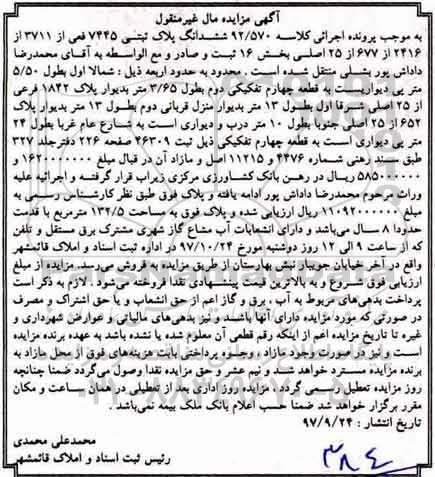 آگهی مزایده مال غیرمنقول
به موجب پرونده اجرائی کلاسه ۹۲/۵۷۰ ششدانگ پلاک ثبتی ۷۴۴۵ فعی از ۳۷۱۱ از
۲۴۱۶ از ۶۷۷ از ۲۵ اصلی بخش ۱۶ ثبت و صادر و مع الواسطه به آقای محمدرضا
داداش پور بشلی منتقل شده است . محدود به حدود اربعه ذیل : شمالا اول بطول ۵/۵۰
متر پی دیواریست به قطعه چهارم تفکیکی دوم بطول ۳/۶۵ متر بدیوار پلاک ۱۸۴۲ فرعی
از ۲۵ اصلی شرقا اول بطول ۱۳ متر بدیوار منزل قربانی دوم بطول ۱۳ متر بدیوار پلاک
۶۵۲ از ۲۵ اصلی جنوبا بطول ۱۰ متر درب و دیواری است به شارع عام غربا بطول ۲۴
متر پی دیواری است به قطعه چهارم تفکیکی ذیل ثبت ۴۶۳۰۹ صفحه ۲۲۶ دفترجلد ۳۲۷
طبق سند رهنی شماره ۴۴۷۶ و ۱۱۲۱۵ اصل و مازاد آن در قبال مبلغ ۱۶۲۰۰۰۰۰۰ و
۵۸۵۰۰۰۰۰ ریال در رهن بانک کشاورزی مرکزی زیراب قرار گرفته و اجرائیه علیه
وراث مرحوم محمدرضا داداش پور ادامه یافته و پلاک فوق طبق نظر کارشناس رسمی به
مبلغ ۱۱۰۹۲۰۰۰۰۰۰ ریال ارزیابی شده و پلاک فوق به مساحت ۱۳۲/۵ مترمربع با قدمت
حدودا ۸ سال می‌باشد و دارای انشعابات آب مشاع گاز شهری مشترک برق مستقل و تلفن
که از ساعت ۹ الی ۱۲ روز دوشنبه مورخ ۹۷/۱۰/۲۴ در اداره ثبت اسناد و املاک قائمشهر
واقع در آخر خیابان جویبار نبش بهارستان از طریق مزایده به فروش می‌رسد. مزایده از مبلغ
ارزیابی فوق شروع و به بالاترین قیمت پیشنهادی نقدا فروخته می‌شود . لازم به ذکر است
پرداخت بدهی‌های مربوط به آب ، برق و گاز اعم از حق انشعاب و یا حق اشتراک و مصرف
در صورتی که مورد مزایده دارای آنها باشد و نیز بدهی‌های مالیاتی و عوارض شهرداری و
غیره تا تاریخ مزایده اعم از اینکه رقم قطعی آن معلوم شده یا نشده باشد به عهده برنده مزایده
است و نیز در صورت وجود مازاد ، وجوه پرداختی بابت هزینه‌های فوق از محل مازاد به
برنده مزایده مسترد خواهد شد و نیم عشر و حق مزایده نقدا وصول می‌گردد ضمنا چنانچه
روز مزایده تعطیل رسمی گردد ، مزایده روز اداری بعد از تعطیلی در همان ساعت و مکان
مقرر برگزار خواهد شد ضمنا حسب اعلام بانک ملک بیمه نمی‌باشد .
تاریخ انتشار : ۹۷/۹/۲۴
محمدعلی محمدی
رئیس ثبت اسناد و املاک قائمشهر
۳۸۴